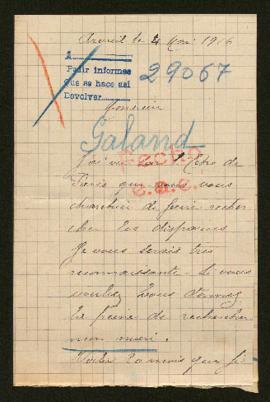 le 4 Mai 1916
A
Pedir informes
que se hace así
Devolver
29067
Monsieur
Galand
J'ai vu sur l'Echo de
Paris que vous vous
chargiez de faire recher
cher les disparus
Je vous serais très
reconnaissante. Si vous
voulez vous donner
la peine de rechercher
mon mari.
Voilà mois que je